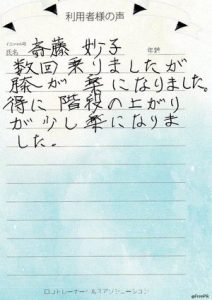 利用者様の声
イニシャル可
氏名 斎藤 妙子 年齢
数回乗りましたが
膝が楽になりました。
得に階段の上がり
が少し楽になりま
した。
ロコトレーナーヘルスアソシエーション
@FreePik